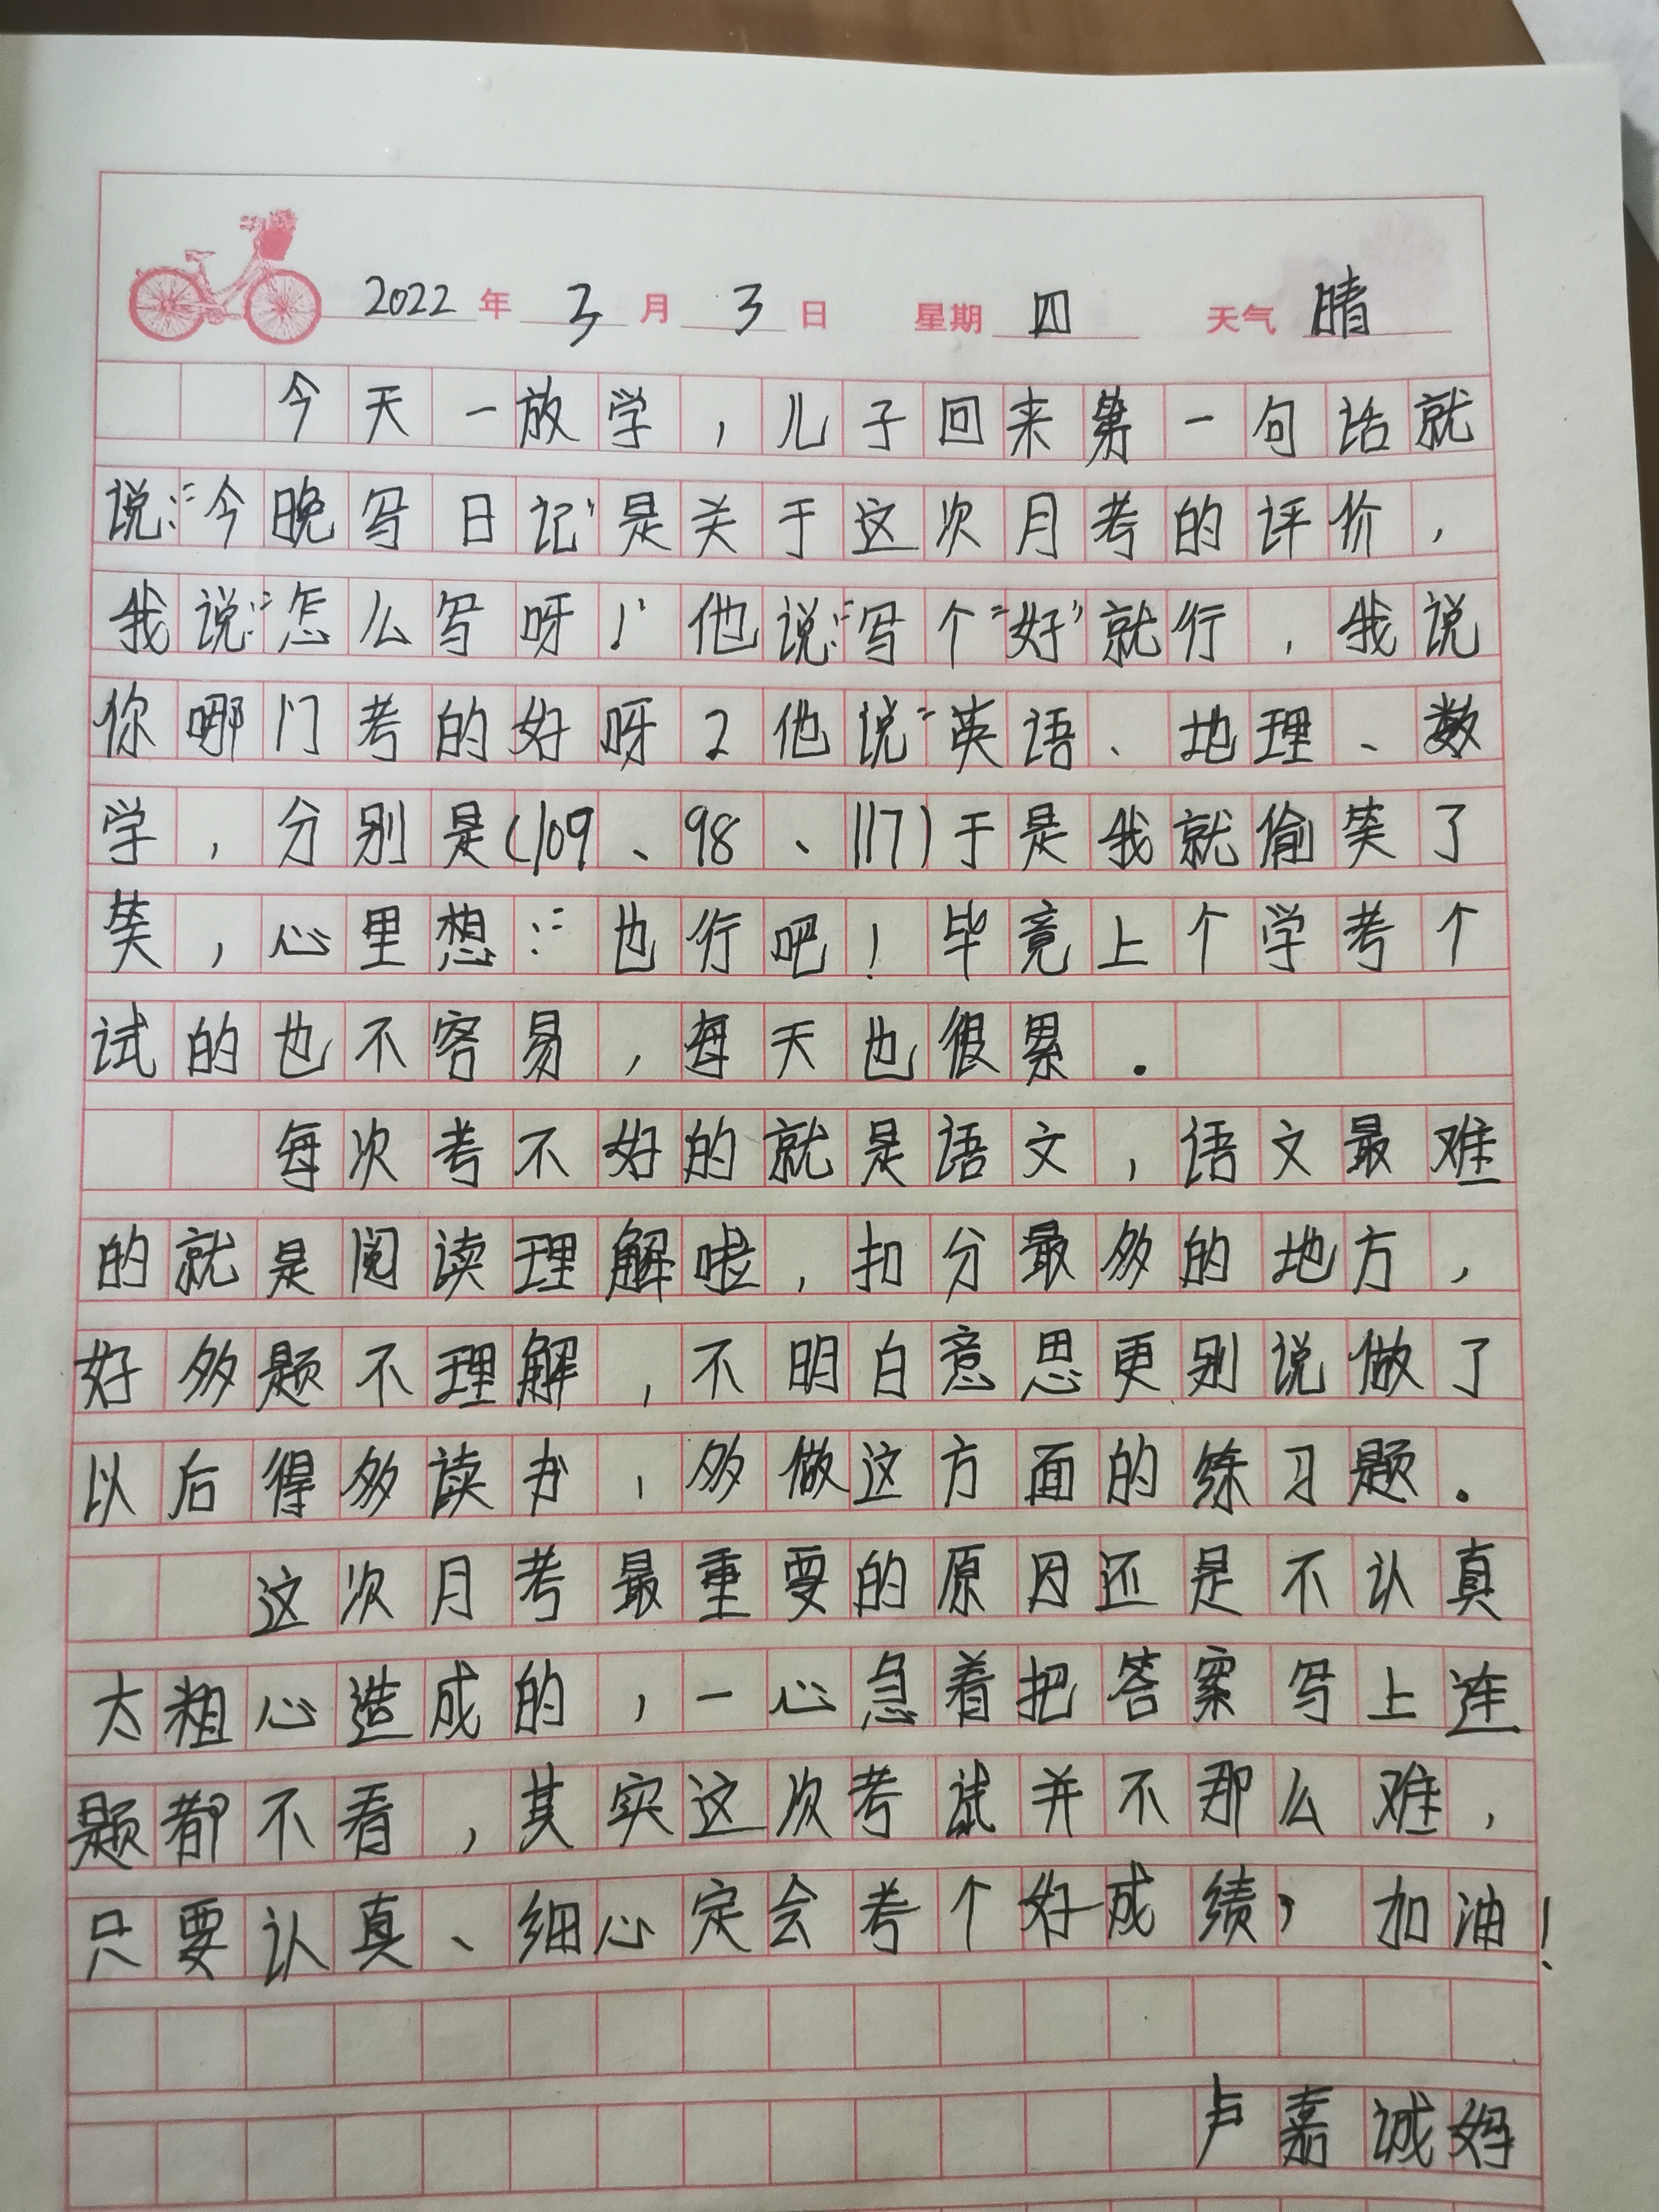 2022年3月3日 星期四 天气晴
今天一放学，儿子回来第一句话就
说:“今晚写日记”是关于这次月考的评价，
我说:“怎么写呀！”他说:“写个“好”就行，我说
你哪门考的好呀？他说“英语、地理、数
学，分别是(109、98、117)于是我就偷笑了
笑，心里想:“也行吧！毕竟上个学考个
试的也不容易，每天也很累.
每次考不好的就是语文，语文最难
的就是阅读理解啦，扣分最多的地方，
好多题不理解，不明白意思更别说做了
以后得多读书，多做这方面的练习题.
这次月考最重要的原因还是不认真
太粗心造成的，一心急着把答案写上连
题都不看，其实这次考试并不那么难，
只要认真、细心定会考个好成绩，加油！
卢嘉诚妈